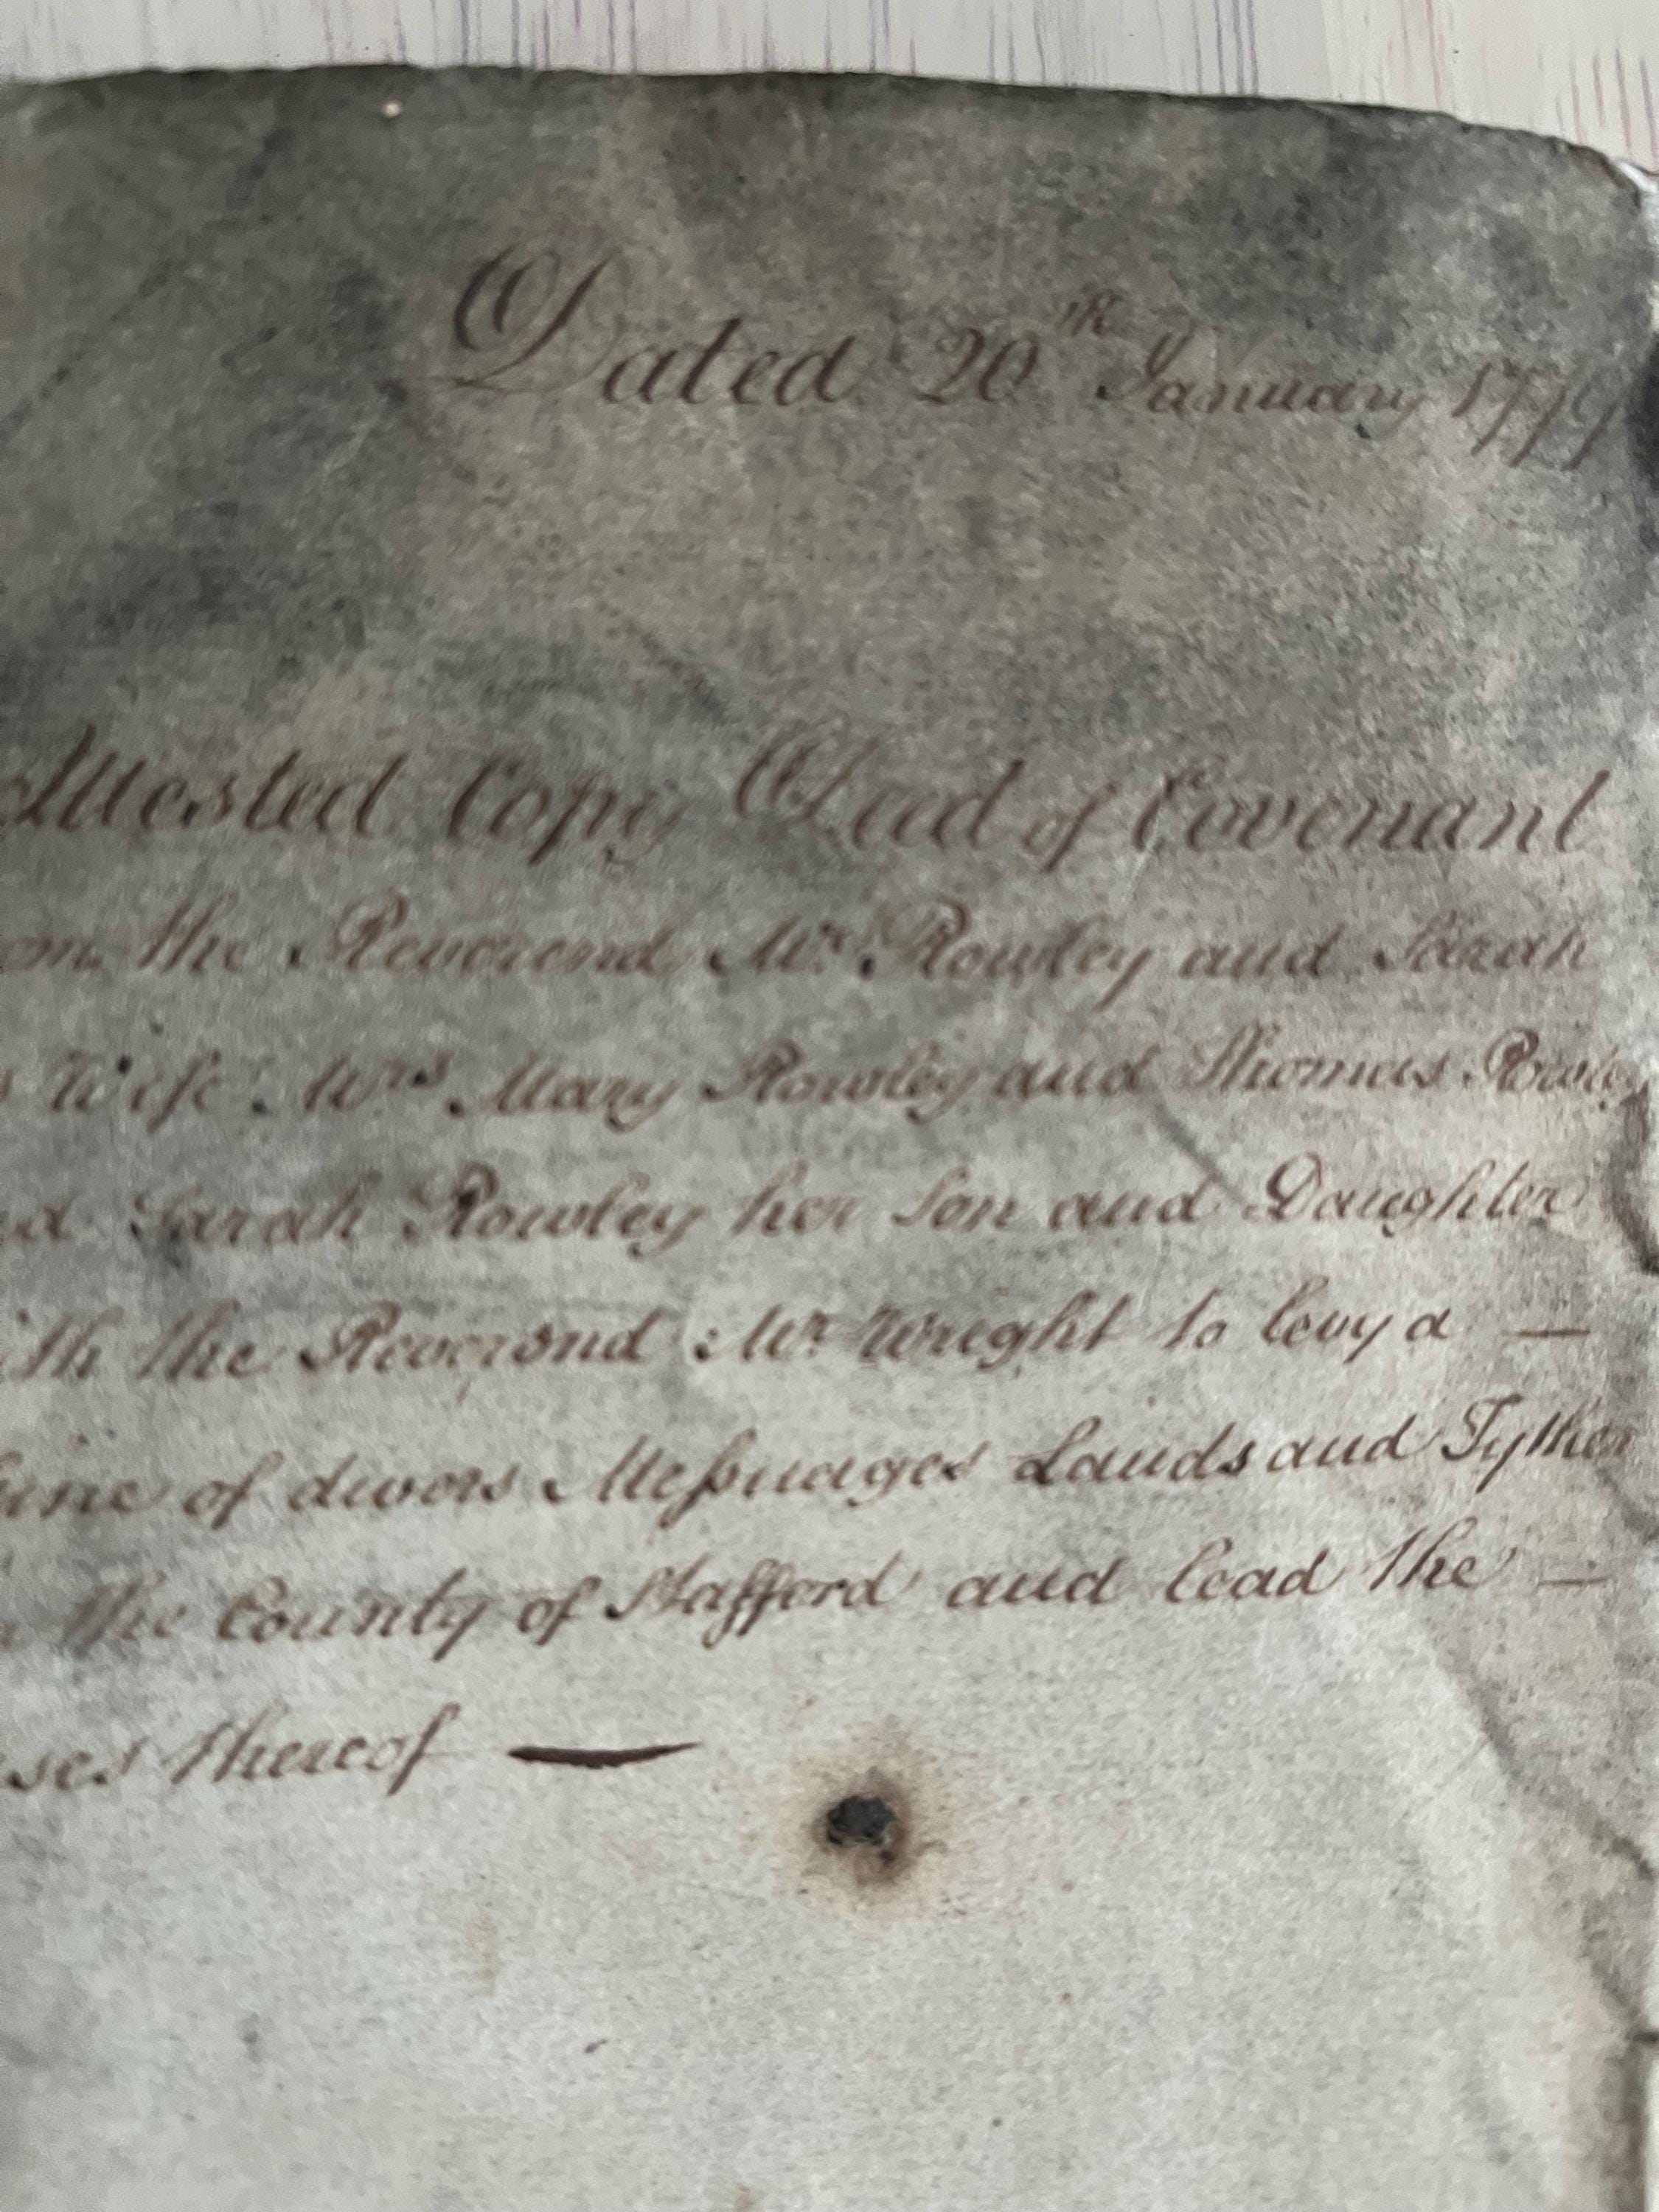 Dated 20th January 1779
Attested Copy Deed of Covenant
om the Reverend Mr. Rowley and Sarah
s Wife Mrs Mary Rowley and Thomas Rowley
nd Sarah Rowley her Son and Daughter
ith the Reverend Mr. Wright to levy a —
fine of divers Messuages Lands and Tythes
n the County of Stafford and lead the —
ses thereof —